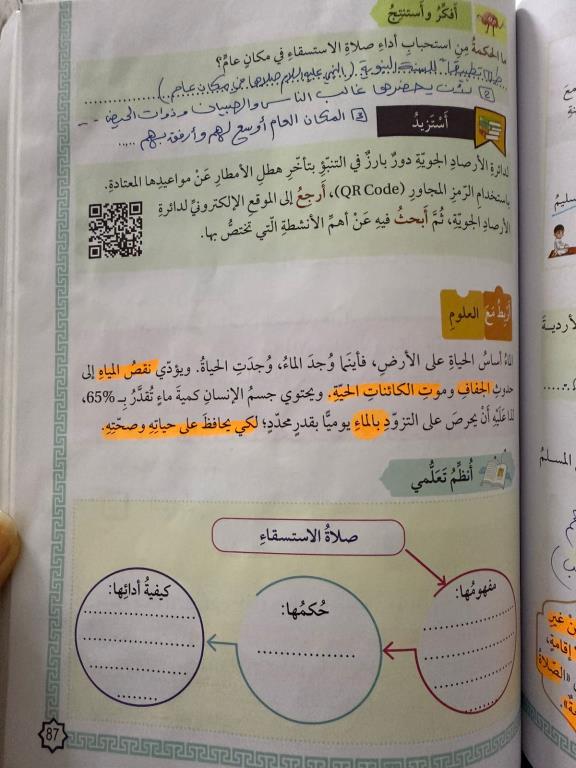 أفكّرُ وأستنتِجُ
ما الحكمةُ مِنِ استحبابِ أداءِ صلاةِ الاستسقاءِ في مكانٍ عامٍّ؟
تطبيقاً للسنة النبوية (النبي عليه السلام صلاها في مكان عام)
2 لأن يحضرها غالب الناس والصبيان وذوات الحيض
3 المكان العام أوسع لهم وأرفق بهم
أَسْتَزيدُ
لدائرةِ الأرصادِ الجويّةِ دورٌ بارزٌ في التنبّؤِ بتأخّرِ هطلِ الأمطارِ عَنْ مواعيدِها المعتادةِ.
باستخدامِ الرّمزِ المجاورِ (QR Code)، أَرجعُ إلى الموقعِ الإلكترونيِّ لدائرةِ
الأرصادِ الجويّةِ، ثُمَّ أَبحثُ فيهِ عَنْ أهمِّ الأنشطةِ الّتي تختصُّ بها.
أَربِطُ مَعَ العلومِ
الماءُ أساسُ الحياةِ على الأرضِ، فأينَما وُجدَ الماءُ، وُجدَتِ الحياةُ. ويؤدّي نقصُ المياهِ إلى
حدوثِ الجفافِ وموتِ الكائناتِ الحيّةِ. ويحتوي جسمُ الإنسانِ كميةَ ماءٍ تُقدَّرُ بـ 65%،
لذا عَلَيْهِ أَنْ يحرصَ على التزوّدِ بالماءِ يوميًّا بقدرٍ محدّدٍ؛ لكي يحافظَ على حياتِهِ وصحّتِهِ.
أُنظِّمُ تَعَلُّمي
صلاةُ الاستسقاءِ
مفهومُها:
حُكمُها:
كيفيةُ أدائِها:
87